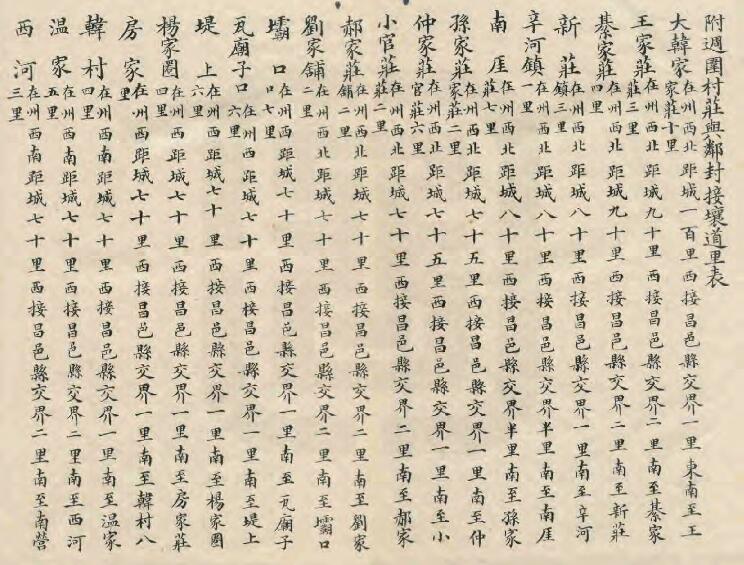 附週圍村莊與鄰封接壤道里表
大韓家在州西北距城一百里西接昌邑縣交界一里東南至王
家莊十里
王家莊在州西北距城九十里西接昌邑縣交界二里南至綦家
莊三里
綦家莊在州西北距城九十里西接昌邑縣交界二里南至新莊
四里
新莊在州西北距城八十里西接昌邑縣交界一里南至辛河
鎮三里
辛河鎮在州西北距城八十里西接昌邑縣交界半里南至南厓
一里
南厓在州西北距城八十里西接昌邑縣交界半里南至孫家
莊七里
孫家莊在州西北距城七十五里西接昌邑縣交界一里南至仲
家莊二里
仲家莊在州西北距城七十五里西接昌邑縣交界一里南至小
官莊六里
小官莊在州西北距城七十里西接昌邑縣交界二里南至郝家
莊二里
郝家莊在州西北距城七十里西接昌邑縣交界二里南至劉家
舖二里
劉家舖在州西北距城七十里西接昌邑縣交界二里南至壩口
二里
壩口在州西距城七十里西接昌邑縣交界一里南至瓦廟子
口七里
瓦廟子口在州西距城七十里西接昌邑縣交界一里南至堤上
六里
堤上在州西距城七十里西接昌邑縣交界一里南至楊家圈
六里
楊家圈在州西距城七十里西接昌邑縣交界一里南至房家莊
四里
房家在州西距城七十里西接昌邑縣交界一里南至韓村八
里
韓村在州西南距城七十里西接昌邑縣交界一里南至温家
四里
温家在州西南距城七十里西接昌邑縣交界二里南至西河
五里
西河在州西南距城七十里西接昌邑縣交界二里南至南營
三里